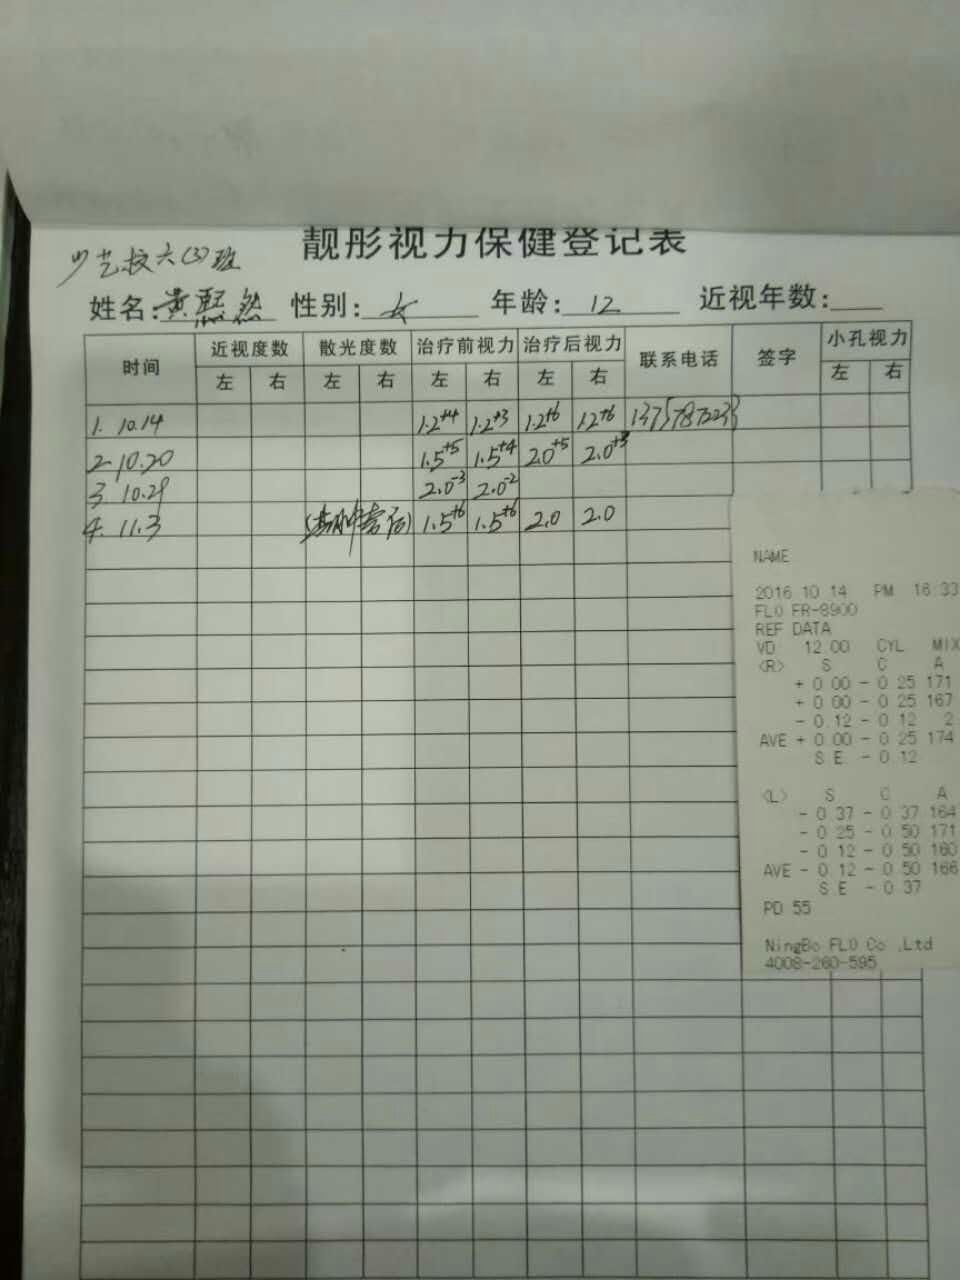 靓彤视力保健登记表
少艺校六(3)班
姓名:黄熙然 性别:女 年龄:12 近视年数:
时间 近视度数 散光度数 治疗前视力 治疗后视力 联系电话 签字 小孔视力
左 右 左 右 左 右 左 右 左 右
1. 10.14 1.2+4 1.2+3 1.2+6 1.2+6
2. 10.20 1.5+5 1.5+4 2.0+5 2.0+3
3 10.29 2.0-3 2.0-2
4. 11.3 1.5+6 1.5+6 2.0 2.0
NAME
2016 10 14 PM 16:33
FLO FR-8900
REF DATA
VD 12.00 CYL MIX
<R> S C A
+ 0.00 - 0.25 171
+ 0.00 - 0.25 167
- 0.12 - 0.12 2
AVE + 0.00 - 0.25 174
S.E. - 0.12
<L> S C A
- 0.37 - 0.37 164
- 0.25 - 0.50 171
- 0.12 - 0.50 160
AVE - 0.12 - 0.50 166
S.E. - 0.37
PD 55
NingBo FLO Co.,Ltd
4008-260-595